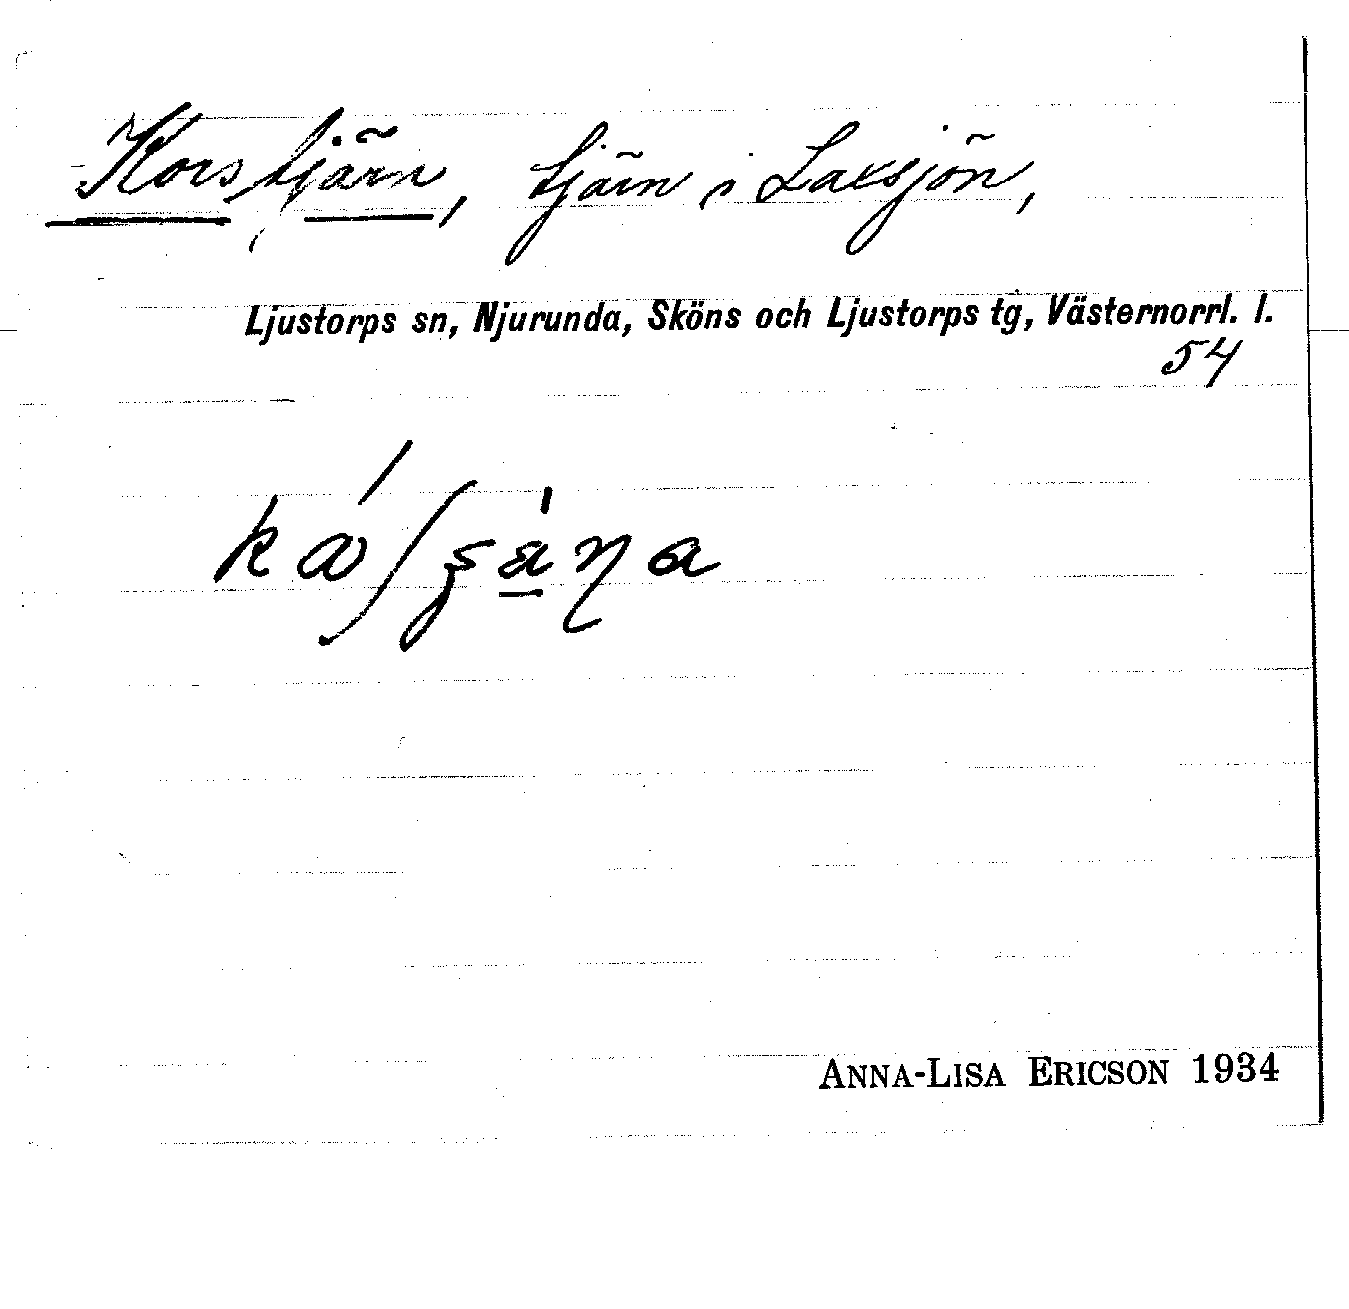 Korstjärn, tjärn i Laxsjön,
Ljustorps sn, Njurunda, Sköns och Ljustorps tg, Västernorrl. l.
54
ANNA-LISA ERICSON 1934